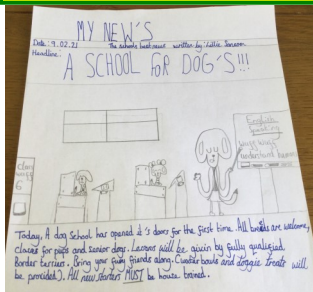 MY NEW'S
Date: 9.02.21 The schools best news written by: Lillie
Headline:
A SCHOOL FOR DOG'S!!!
English
Speaking
understand
class
6
Today, A dog school has opened it's doors for the first time. All breeds are welcome,
classes for pups and senior dogs. Lessons will be givin by fully qualified
Border terriers. Bring your furry friends along. (water bowls and doggie treats will
be provided). All new starters MUST be house trained.